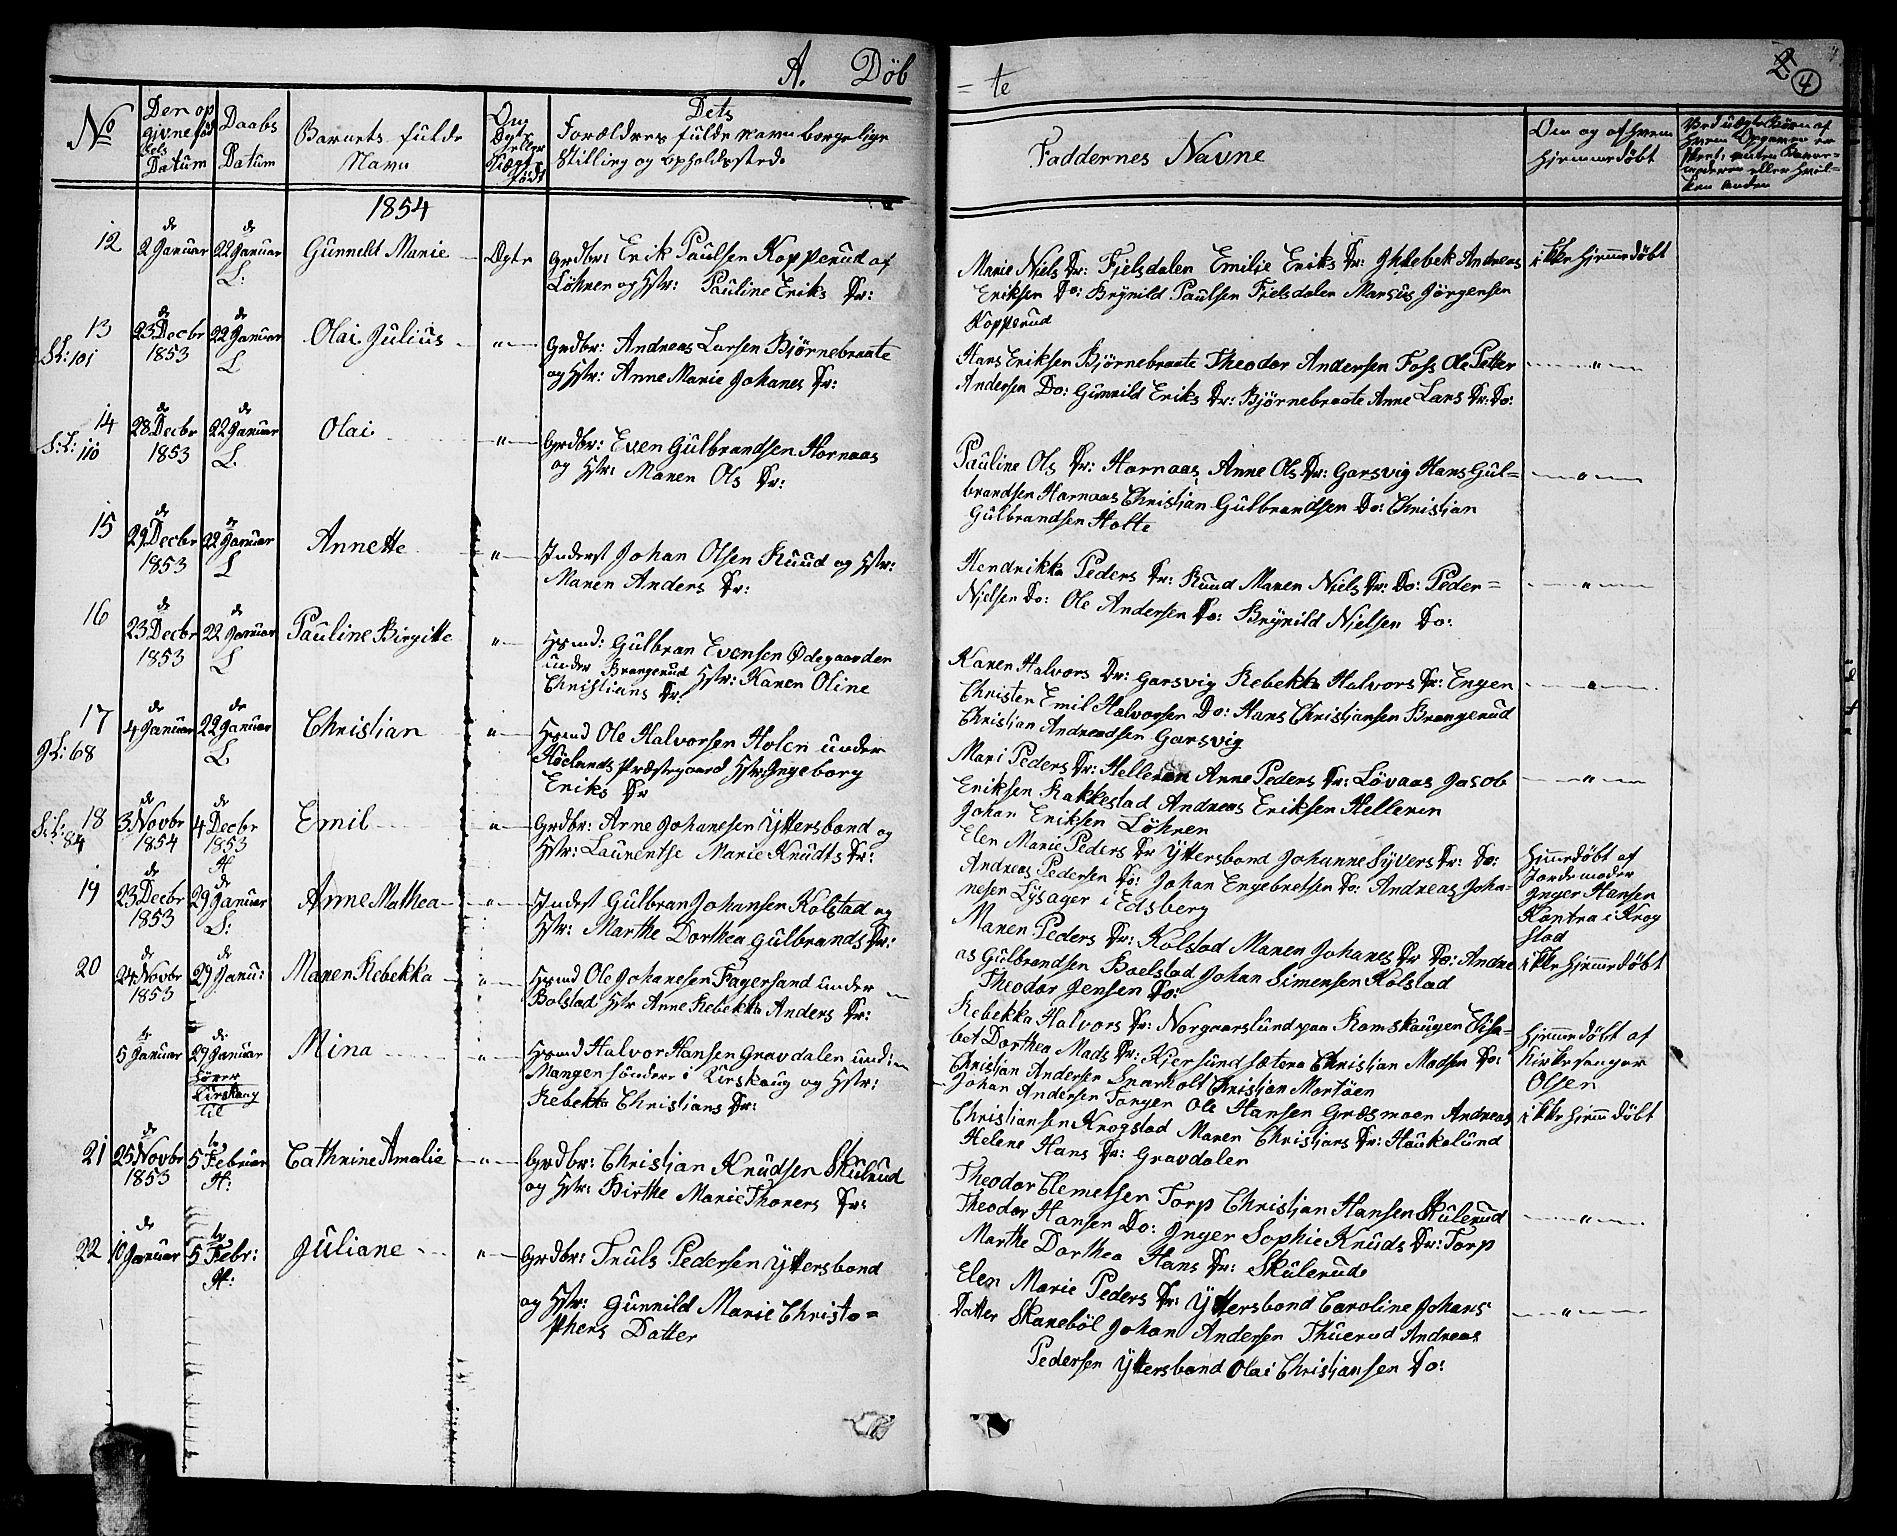 A. Döb
= te
4
No
Den op
givne föd
sels
Datum
Daabs
Datum
Barnets fulde
Navn
Om
Ægte
eller
Uægte
födt
Dets
Forældres fulde Navn borgelige
Stilling og opholdssted.
Faddernes Navne
Om og af hvem
hjemmedöbt
1854
12
de
2 Januar
de
22 Januar
L:
Gunneld Marie
Ægte
Grdbr: Erik Paulsen Kopperud af
Löhren og Hstr: Pauline Eriks Dr:
Marie Niels Dr: Fjelsdalen Emilie Eriks Dr: Ihlebek Andreas
Eriksen Do: Brynild Paulsen Fjelsdalen Marius Jörgensen
Kopperud
ikke hjemedöbt
13
S.L: 101
de
23 Decbr
1853
de
22 Januar
L
Olai Julius
"
Grdbr: Andreas Larsen Björnebraate
og Hstr: Anne Marie Johanes Dr:
Hans Eriksen Björnebraate Theodor Andersen Foss Ole Petter
Andersen Do: Gunnild Eriks Dr: Björnebraate Anne Lars Dr: Do:
"
14
S.L: 110
de
28 Decbr
1853
de
22 Januar
L.
Olai
"
Grdbr: Even Gulbrandsen Hornaas
og Hstr: Maren Ols Dr:
Pauline Ols Dr: Hornaas, Anne Ols Dr: Garsvig Hans Gul=
brandsen Hornaas Christian Gulbrandsen Do: Christian
Gulbrandsen Holte
"
15
de
29 Decbr
1853
de
22 Januar
L
Annette
"
Inderst Johan Olsen Ruud og Hstr:
Maren Anders Dr:
Hendrikka Peders Dr: Ruud Maren Niels Dr: Do: Peder=
Nielsen Do: Ole Andersen Do: Brynild Nielsen Do:
"
16
de
23 Decbr
1853
de
22 Januar
L
Pauline Birgitte
"
Hsmd: Gulbran Evensen Ødegaarden
under Brangerud Hstr: Karen Oline
Christians Dr:
Karen Halvors Dr: Garsvig Rebekka Halvors Dr: Engen
Christen Emil Halvorsen Do: Hans Christiansen Brangerud
Christian Andreadsen Garsvig
"
17
gL: 68
de
4 Januar
de
22 Januar
L.
Christian
"
Hsmd Ole Halvorsen Holen under
Hölands Præstegaard Hstr: Ingeborg
Eriks Dr
Mari Peders Dr: Helleren Anne Peders Dr: Lövaas Jacob
Eriksen Rakkestad Andreas Eriksen Helleren
Johan Eriksen Löhren
"
18
S.L: 84
de
3 Novbr
1854
de
4 Decbr
1853
H
Emil
"
Grdbr: Arne Johanesen Yttersbond og
Hstr: Laurentse Marie Knudts Dr:
Elen Marie Peders Dr Yttersbond Johanne Syvers Dr: Do:
Andreas Pedersen Do: Johan Engebretsen Do: Andreas Joha=
nesen Lysager i Edsberg
Hjmedöbt af
Jordemoder
Inger Hansen
Kontra i Krog
stad
19
de
23 Decbr
1853
de
29 Januar
S:
Anne Mathea
"
Inderst Gulbran Johansen Kolstad og
Hstr: Marthe Dorthea Gulbrands Dr:
Maren Peders Dr: Kolstad Maren Johanes Dr Do: Andre
as Gulbrandsen Boelstad Johan Simensen Kolstad
Theodor Jensen Do:
ikke hjemedöbt
20
de
24 Novbr
1853
de
29 Janu:
Maren Rebekka
"
Hsmd Ole Johanesen Fagersand under
Bolstad Hstr Anne Rebekka Anders Dr:
Rebekka Halvors Dr: Norgaarslund paa Romskaugen Elisa=
bet Dorthea Mads Dr: Kjersundsætera Christian Madsen Do:
Christian Andersen Snarholt Christian Mortöen
hjemedöbt af
Kirkesanger
Olsen
5 Januar
de
29 Januar
hører
Kirskaug
til
Mina
"
Hsmd Halvor Hansen Gravdalen und:
Mangen söndere i Kirskaug og Hstr:
Rebekka Christians Dr:
Johan Andersen Tangen Ole Hansen Græsmoen Andreas
Christiansen Krogstad Maren Christians Dr: Haukelund
Helene Hans Dr: Gravdalen
ikke hjemedöbt
21
de
25 Novbr
1853
5 Februar
H:
Cathrine Amalie
"
Grdbr: Christian Knudsen Skulerud
og Hstr: Birthe Marie Thorers Dr:
Theodor Clemetsen Torp Christian Hansen Skulerud
Theodor Hansen Do: Inger Sophie Knuds Dr: Torp
Marthe Dorthea Hans Dr: Skulerud
"
22
de
10 Januar
5 Febr:
H:
Juliane
"
Grdbr: Truls Pedersen Yttersbond
og Hstr: Gunnild Marie Christo=
phers Datter
Elen Marie Peders Dr: Yttersbond Caroline Johans
Datter Skaneböl Johan Andersen Thuerud Andreas
Pedersen Yttersbond Olai Christiansen Do:
"